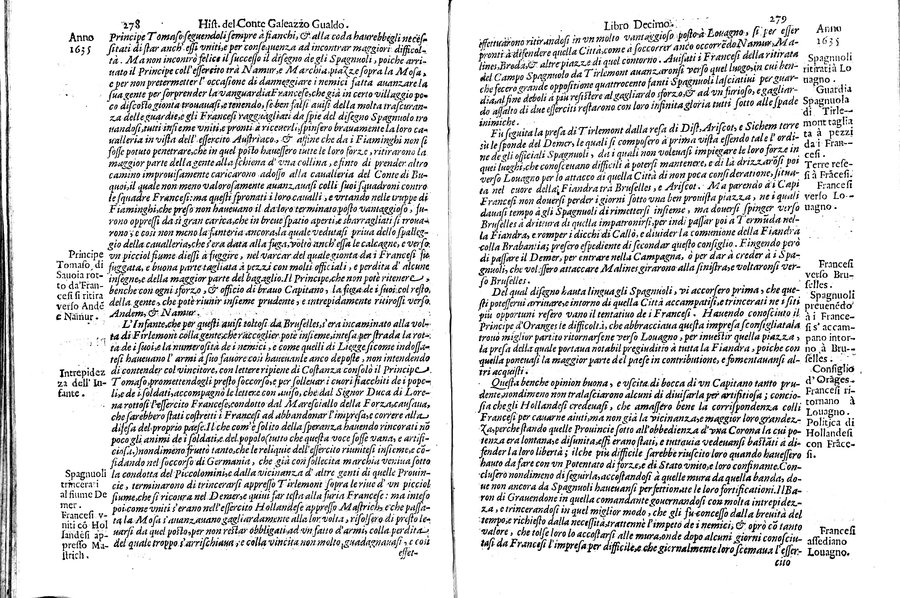 278 Hist. del Conte Galeazzo Gualdo.
Anno
1635
Principe Tomaso seguendoli sempre à fianchi, & alla coda haurebbegli neces-
sitati di star anch'essi vniti, e per consequenza ad incontrar maggiori difficol-
tà. Ma non incontrò felice il successo il disegno de gli Spagnuoli, poiche arri-
uato il Principe coll'essercito trà Namur, e Marchia, piazze sopra la Mosa,
e per non pretermetter l'occasione di danneggiare i nemici fatta auanzare la
sua gente per sorprender la vanguardia Francese, che già in certo villaggio po-
co discosto gionta trouauasi, e tenendo, se ben falsi auisi della molta trascuran-
za delle guardie, e gli Francesi ragguagliati da spie del disegno Spagnuolo tro
uandosi, tutti insieme vniti, e pronti à riceuerli, spinsero brauamente la loro ca-
ualleria in vista dell'essercito Austriaco, & affine che da i Fiaminghi non si
fosse potuto penetrare, che in quel posto hauessero tutte le loro forze, ritirarono la
maggior parte della gente alla schiena d'vna collina, e finto di prender altro
camino improuisamente caricarono adosso alla caualleria del Conte di Bu-
quoi, il quale non meno valorosamente auanzauasi colli suoi squadroni contro
le squadre Francesi: ma questi spronati i loro caualli, e vrtando nelle truppe di
Fiaminghi, che preso non haueuano il da loro terminato posto vantaggioso, fu-
rono oppressi da sì gran carica, che in breue spatio aperti, e sbarragliati si troua-
rono; e così non meno la fanteria ancora, la quale vedutasi priua dello spalleg-
gio della caualleria, ch'era data alla fuga, voltò anch'essa le calcagne, e verso
vn picciol fiume diessi à fuggire, nel varcar del quale gionta da i Francesi fu
fuggata, e buona parte tagliata à pezzi con molti officiali, e perdita d'alcune
insegne, e della maggior parte del bagaglio. Il Principe, che non potè ritenere,
benche con ogni sforzo, & officio di brauo Capitano, la fuga de i suoi, col resto
della gente, che potè riunir insieme prudente, e intrepidamente ritirossi verso
Andem, & Namur.
Principe
Tomaso di
Sauoia rot-
to da Fran-
cesi si ritira
verso Andē
e Namur.
L'Infante, che per questi auisi toltosi da Bruselles, s'era incaminato alla vol-
ta di Tirlemont colla gente, che raccoglier potè insieme, intesa per strada la rot-
ta de suoi, e la numerosità de i nemici, e come quelli di Liegge scome indossa-
tesi haueuano l'armi à suo fauore così haueuanle anco deposte, non intendendo
di contender col vincitore, con lettere ripiene di Costanza consolò il Principe
Tomaso, promettendogli presto soccorso, e per solleuar i cuori fiacchiti de i popo-
li, e de i soldati, accompagnò le lettere con auiso, che dal Signor Duca di Lore-
na rottosi l'essercito Francese, condotto dal Maresciallo della Forza, causa,
che sarebbero stati costretti i Francesi ad abbandonar l'impresa, e correre alla
difesa del proprio paese. Il che com'è solito della speranza, hauendo rincorati nō
poco gli animi de i soldati, e del popolo (tutto che questa voce fosse vana, e artifi-
ciosa,) nondimeno fruttò tanto, che le reliquie dell'essercito riunitesi insieme, e cō-
fidando nel soccorso di Germania, che già con sollecita marchia veniua sotto
la condotta del Piccolomini, e dalla vicinanza d'altre genti di quelle Prouin-
cie, terminarono di trincerarsi appresso Tirlemont sopra le riue d'vn picciol
fiume, che si ricoura nel Demer, e quiui far testa alla furia Francese: ma inteso
poi come vniti s'erano nell'essercito Hollandese appresso Mastrich, e che passa-
ta la Mosa s'auanzauano gagliardamente alla lor volta, risolsero di presto le-
uarsi da quel posto, per non restar obbligati ad vn fatto d'armi, colla perdita
del quale troppo s'arrischiaua, e colla vincita non molto guadagnauasi, e così
effet-
Intrepidez
za dell'In-
fante.
Spagnuoli
trincerati
al fiume De
mer.
Francesi v-
niti cō Hol
landesi ap-
presso Ma-
strich.
Libro Decimo. 279
Anno
1635
effettuarono ritirandosi in vn molto vantaggioso posto à Louagno, sì per esser
pronti à difendere quella Città, come à soccorrer anco occorrēdo Namur, Ma-
lines, Breda, & altre piazze di quel contorno. Auisati i Francesi della ritirata
del Campo Spagnuolo da Tirlemont auanzaronsi verso quel luogo, in cui ben-
che fecero grande oppositione quattrocento fanti Spagnuoli lasciatiui per guar-
dia, al fine deboli à più resister al gagliardo sforzo, & ad vn furioso, e gagliar-
do assalto di due esserciti restarono con loro infinita gloria tutti sotto alle spade
inimiche.
Spagnuoli
ritiratià Lo
uagno.
Guardia
Spagnuola
di Tirle-
mont taglia
ta à pezzi
da i Fran-
cesi.
Fù seguita la presa di Tirlemont dalla resa di Dist, Ariscot, e Sichem terre
sù le sponde del Demer, le quali si composero à prima vista essendo tale l'ordi-
ne de gli officiali Spagnuoli, da i quali non voleuasi impiegar le loro forze in
quei luoghi, che conosceuano difficili à potersi mantenere, e di là drizzarōsi poi
verso Louagno per lo attacco di quella Città di non poca consideratione, situa-
ta nel cuore della Fiandra trà Bruselles, e Ariscot. Ma parendo à i Capi
Francesi non douersi perder i giorni sotto vna ben prouista piazza, ne i quali
dauasi tempo à gli Spagnuoli di rimettersi insieme, ma douersi spinger verso
Bruselles à dritura di quella impatronirsi, per indi passar poi à Termūda nel-
la Fiandra, e romper i dicchi di Callò, e diuider la communione della Fiandra
colla Brabantia; presero espediente di secondar questo consiglio. Fingendo però
di passare il Demer, per entrare nella Campagna, ò per dar à creder à i Spa-
gnuoli, che volessero attaccare Malines girarono alla sinistra, e voltaronsi ver-
so Bruselles.
Terre rese-
si à Frācesi.
Francesi
verso Lo-
uagno.
Francesi
verso Bru-
selles.
Del qual disegno hauta lingua gli Spagnuoli, vi accorsero prima, che que-
sti potessero arriuare, e intorno di quella Città accampatisi, e trincerati ne i siti
più opportuni resero vano il tentatiuo de i Francesi. Hauendo conosciuto il
Principe d'Oranges le difficoltà, che abbracciaua questa impresa sconsigliatala
trouò miglior partito ritornarsene verso Louagno, per inuestir quella piazza,
la presa della quale portaua notabil pregiuditio à tutta la Fiandra, poiche con
quella poneuasi la maggior parte del paese in contributione, e fomentauansi al-
tri acquisti.
Spagnuoli
preuenēdo
à i France-
si s'accam-
pano intor-
no à Bru-
selles.
Consiglio
d'Orāges.
Francesi ri-
tornano à
Louagno.
Questa benche opinion buona, e vscita di bocca di vn Capitano tanto pru-
dente, nondimeno non tralasciarono alcuni di diuisarla per artifitiosa; concio-
sia che gli Hollandesi credeuasi, che amassero bene la corrispondenza colli
Francesi per cauarne aiuti, ma non già la vicinanza, e maggior loro grandez-
za, perche stando quelle Prouincie sotto all'obbedienza d'vna Corona la cui po-
tenza era lontana, e disunita, essi erano stati, e tuttauia vedeuansi bastāti à di-
fender la loro libertà; il che più difficile sarebbe riuscito loro quando hauessero
hauto da fare con vn Potentato di forze, e di Stato vnito, e loro confinante. Con-
clusero nondimeno di seguirla, accostandosi à quelle mura da quella banda, do-
ue non ancora da Spagnuoli haueuansi perfettionate le loro fortificationi. Il Ba-
ron di Grauendone in quella comandante gouernandosi con molta intrepidez-
za, e trincerandosi in quel miglior modo, che gli fù concesso dalla breuità del
tempo, e richiesto dalla necessità, trattenne l'impeto de i nemici, & oprò cō tanto
valore, che tolse loro lo accostarsi alle mura, onde dopo alcuni giorni conosciu-
tasi da Francesi l'impresa per difficile, e che giornalmente loro scemaua l'esser-
cito
Politica di
Hollandesi
con Frāce-
si.
Francesi
assediano
Louagno.